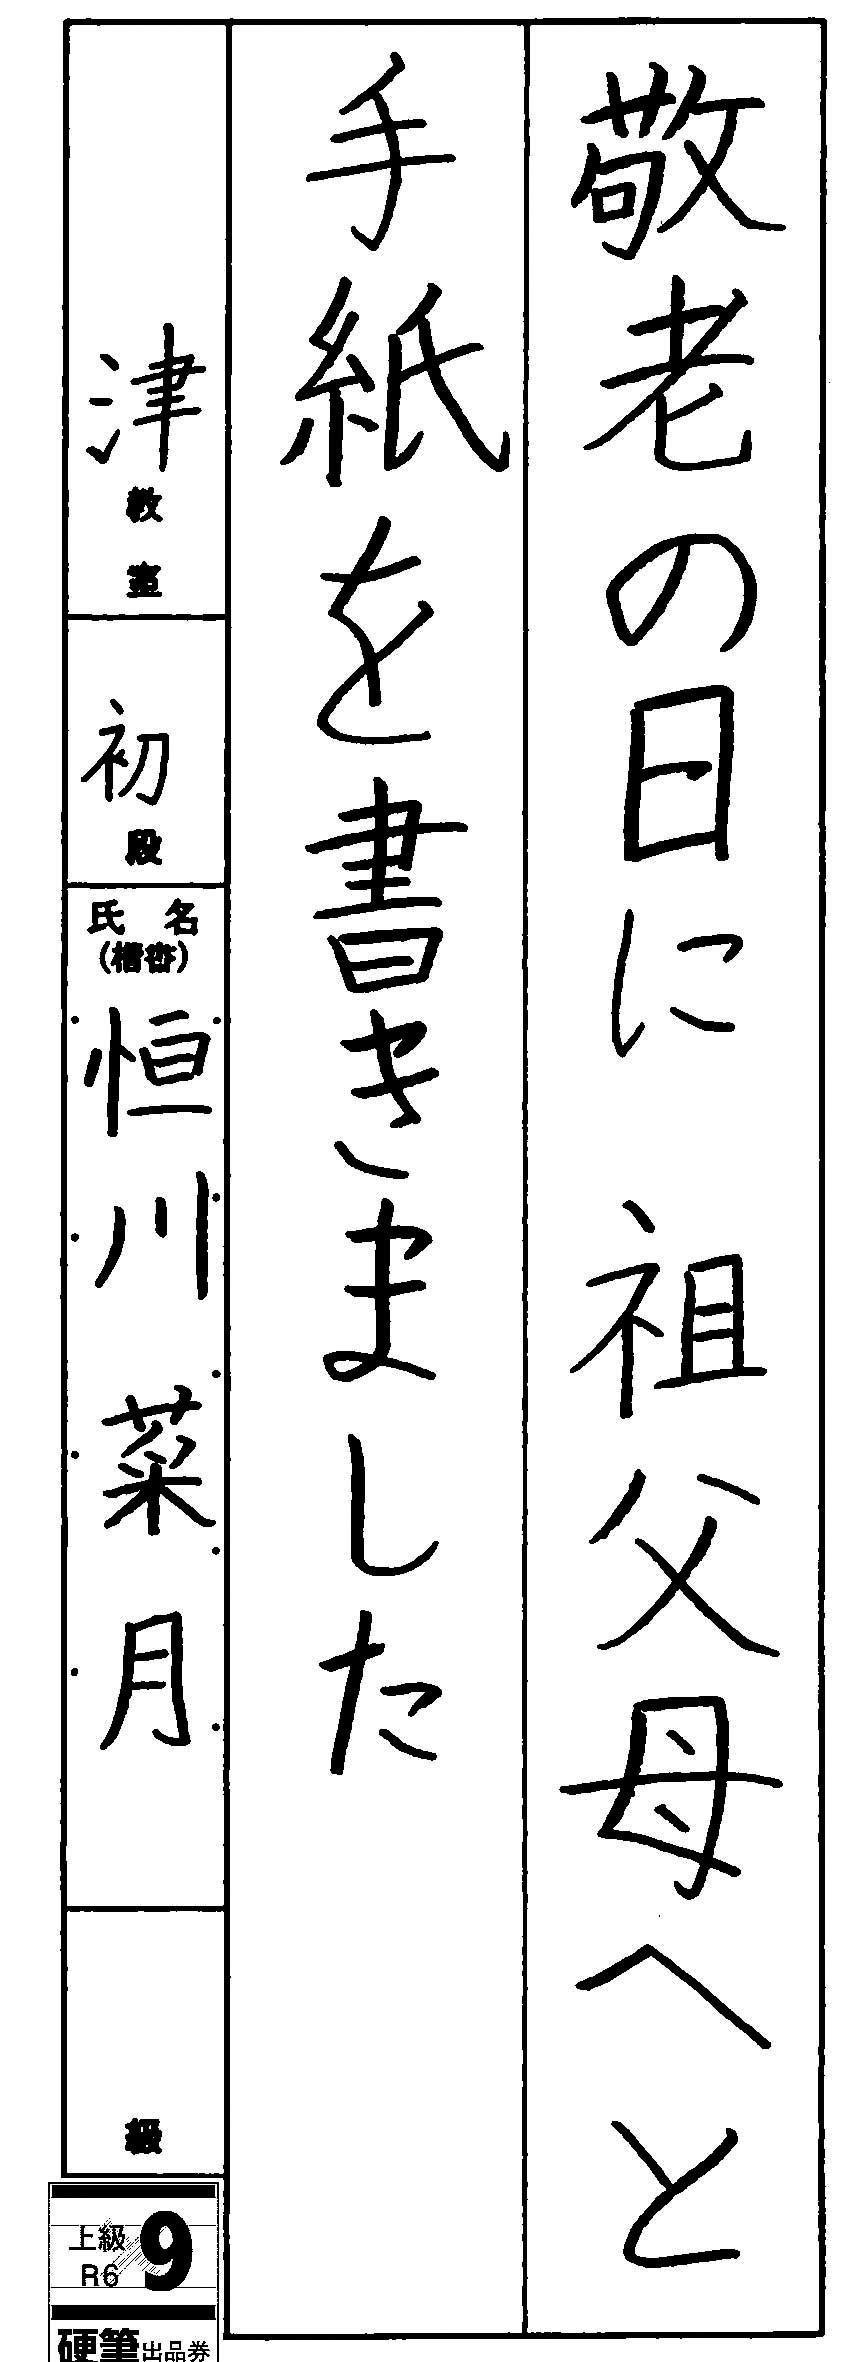 敬老の日に 祖父母へと
手紙を書きました
津教室
初段
氏名
(楷書)
恒川菜月
級
上級 9
R6
硬筆出品券